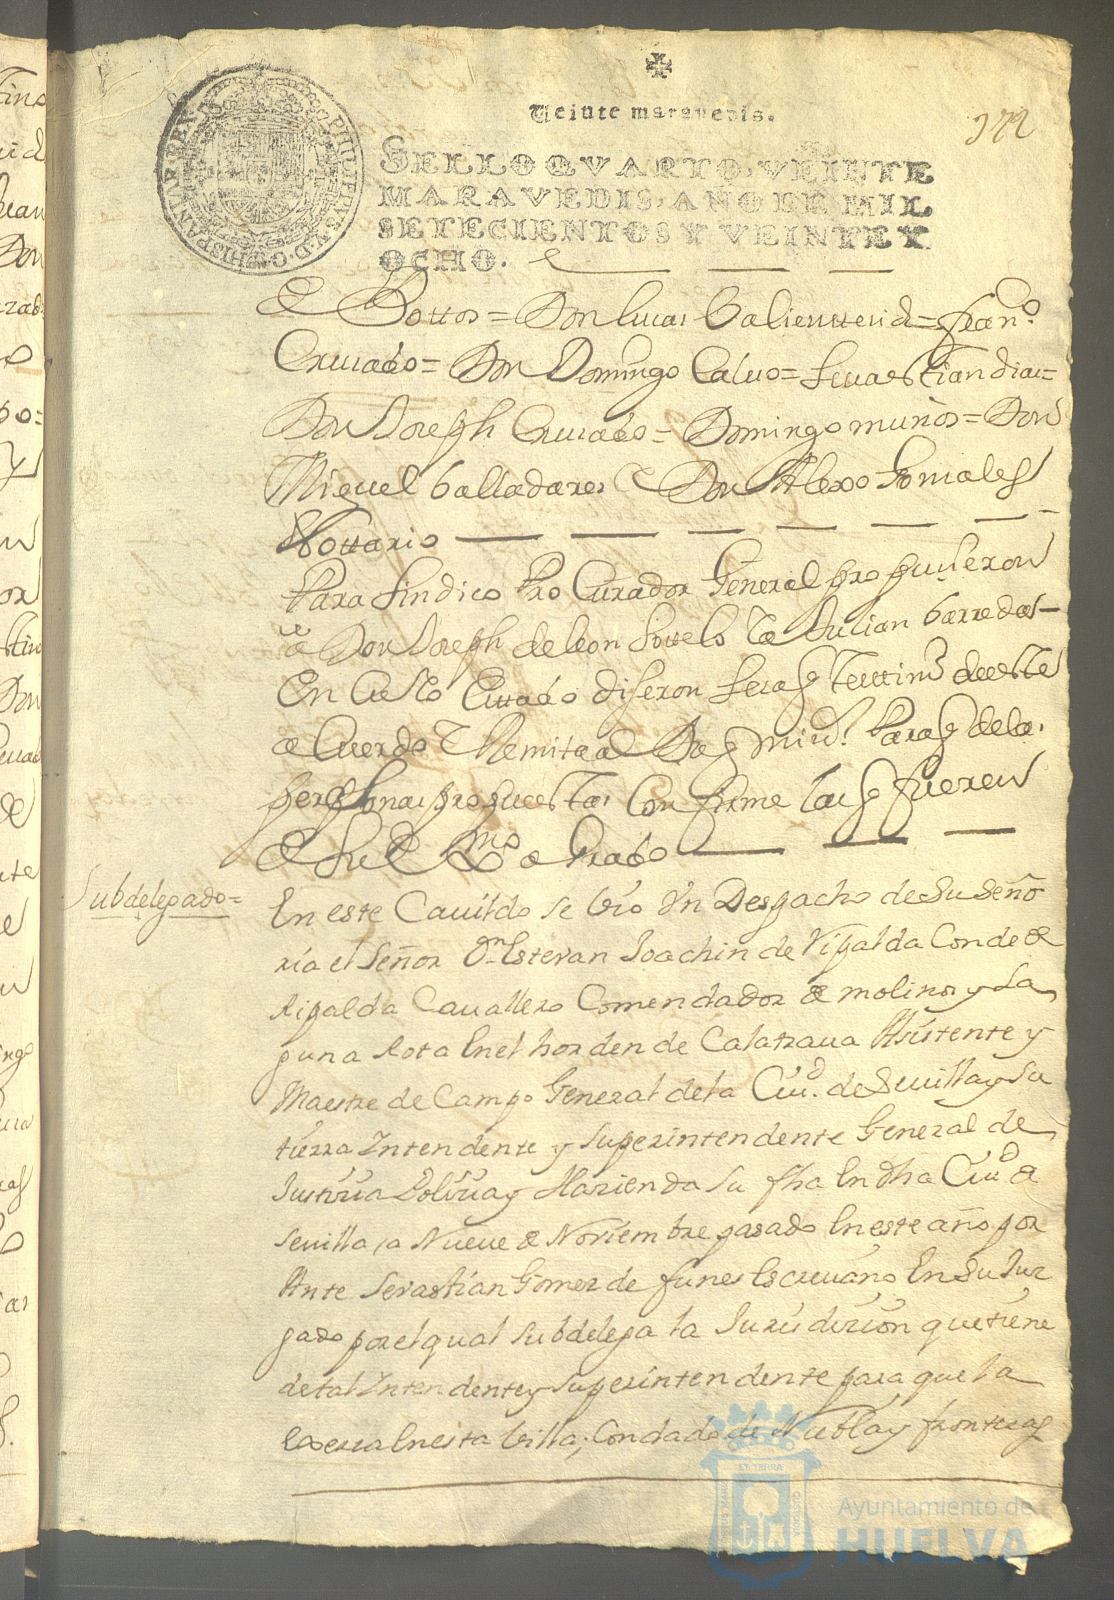 Veinte maravedis.
172
SELLO QVARTO, VEINTE
MARAVEDIS, AÑO DE MIL
SETECIENTOS Y VEINTE Y
OCHO.
PHILIPPVS V D G HISPANIAR REX
Vottos = Don Lucas Valiente = Fran.co
Cruzado = Don Domingo Calvo = Sevastian dias =
Don Joseph Cruzado = Domingo muños = Don
Miguel Valladares Don Alexo Gonsales
Nottario
Para Sindico Procurador General propusieron
a Don Joseph de leon Sottelo Julian Barredas
En Cuyo Esttado dijeron se saq Testtim.o de este
aCuerdo Remita al Duq mi s.r Para q de las
personas propuestas Confirme las q fueren
de su Agrado
Subdelegado =
En este Cavildo se vio Un Despacho de Su Seño
ria el Señor D.n Estevan Joachin de Ripalda Conde de
Ripalda Cavallero Comendador de molinos y La
guna Rota En el horden de Calatrava Asistente y
Maestre de Campo General de la Ciu.d de Sevilla y Su
tierra Intendente y Superintendente General de
Justicia Policia y Hazienda Su fha En dha Ciu.d de
Sevilla, a Nueve de Noviembre pasado En este año por
Ante Sevastian Gomez de funes Escrivano En Su Juz
gado por el qual Subdelega la Jurisdicion que tiene
de tal Intendente y Superintendente para que la
Exersa En esta Villa, Condado de Niebla y fronteras
Ayuntamiento de
HUELVA